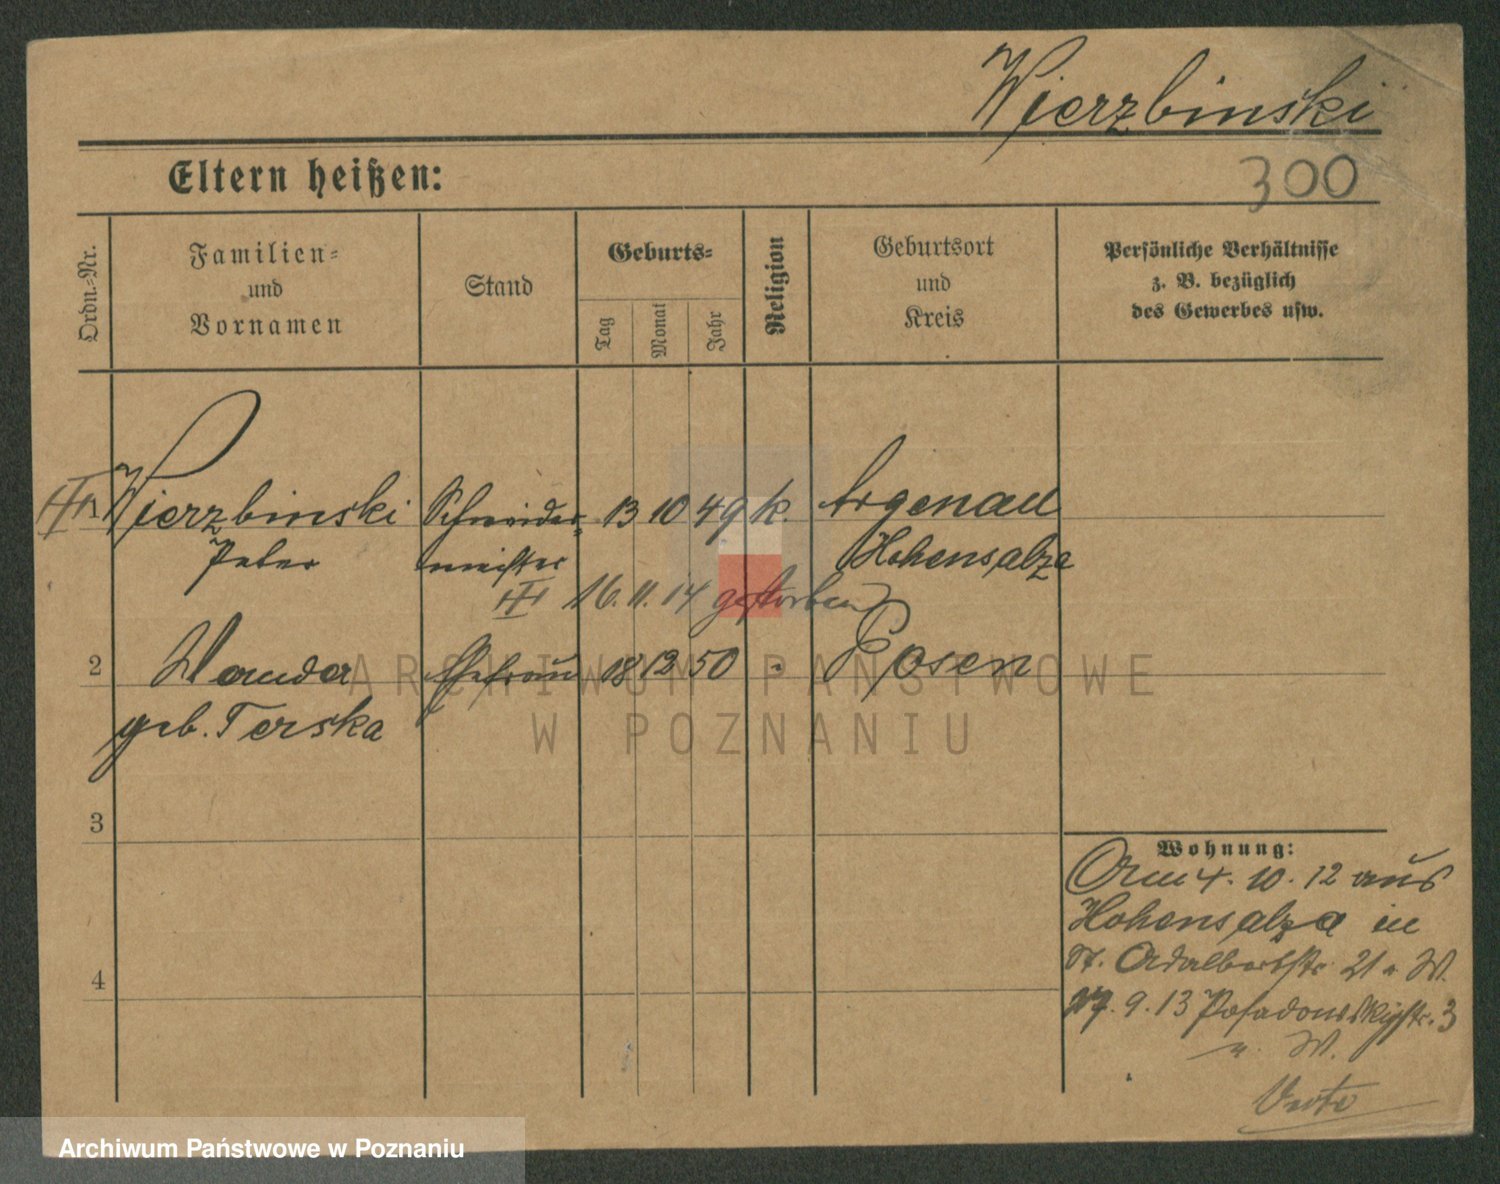 Wierzbinski
300
Eltern heißen:
Ordn.-Nr.
Familien-
und
Vornamen
Stand
Geburts-
Tag
Monat
Jahr
Religion
Geburtsort
und
Kreis
Persönliche Verhältnisse
z. B. bezüglich
des Gewerbes usw.
1 Wierzbinski Schneider- 13 10 49 k. Argenau
Peter meister Hohensalza
16. 11. 14 gestorben
2 Wanda Ehefrau 18 12 50 Posen
geb. Terska
3
4
Wohnung:
Am 4. 10. 12 aus
Hohensalza in
St. Adalbertstr. 21 W.
27. 9. 13 Posadowskystr. 3
W.
ARCHIWUM PAŃSTWOWE
W POZNANIU
Archiwum Państwowe w Poznaniu